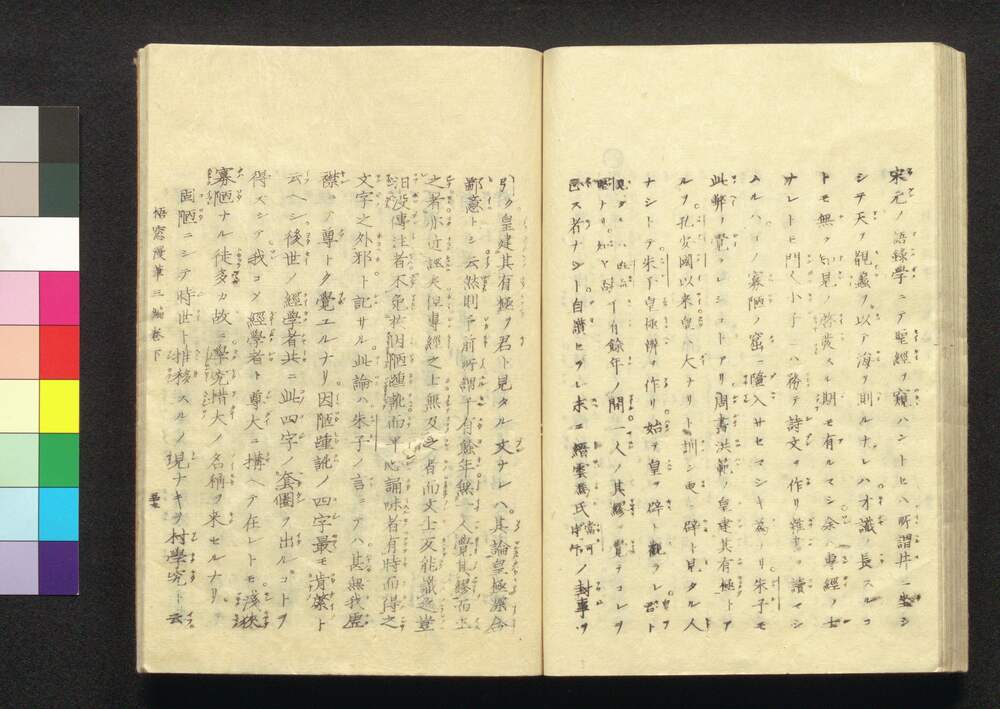 宋元ノ語錄學ニテ聖經ヲ窺ハントセハ所謂井ニ坐シ
シテ天ヲ觀蠡ヲ以テ海ヲ測ルナレハ才識ノ長スルコ
トモ無ク知見ノ啓發スル期モ有ルマシ余ハ專經ノ士
ナレトモ門人小子ニハ務テ詩文ヲ作リ雜書ヲ讀マシ
ムルハコノ寡陋ノ窟ニ陷入サセマシキ為ナリ朱子モ
此弊ヲ覺ラレシコトアリ周書洪範ノ皇建其有極トア
ルヲ孔安國以来皇ハ大ナリト訓シ更ニ辟ト見タル人
ナシトテ朱子皇極辨ヲ作リ始テ皇ヲ辟ト觀ラレ君ト
千有餘年ノ間一人ノ其繆ヲ覺テコレヲ
スル者ナシト自讃セラレ末ニ馮氏ノ封事ヲ
引ク皇建其有極ヲ君ト見タル文ナレハ其論皇極深合
鄙意トシ云然則予前所謂千有餘年無一人覺其繆而正
之者亦近誣矣但專經之士無及之者而文士反能識之豈
汩沒傳注者不免於因陋踵訛而平心誦味者有時而得之
文字之外邪ト記サル此論ハ朱子ノ言ニアハ其無我虛
襟コノ尊トク覺エルナリ因陋踵訛ノ四字最モ肯綮ト
云ヘシ後世ノ經學者共ニ此四字ノ套圈ヲ出ルコトヲ
得スシテ我コソ經學者ト尊大ニ搆ヘテ在レトモ淺狹
寡陋ナル徒多カ故ニ學究措大ノ名稱ヲ来セルナリ
固陋ニシテ時世ト推移スルノ現ナキヲ村學究ト云
梧窓漫筆三編卷下